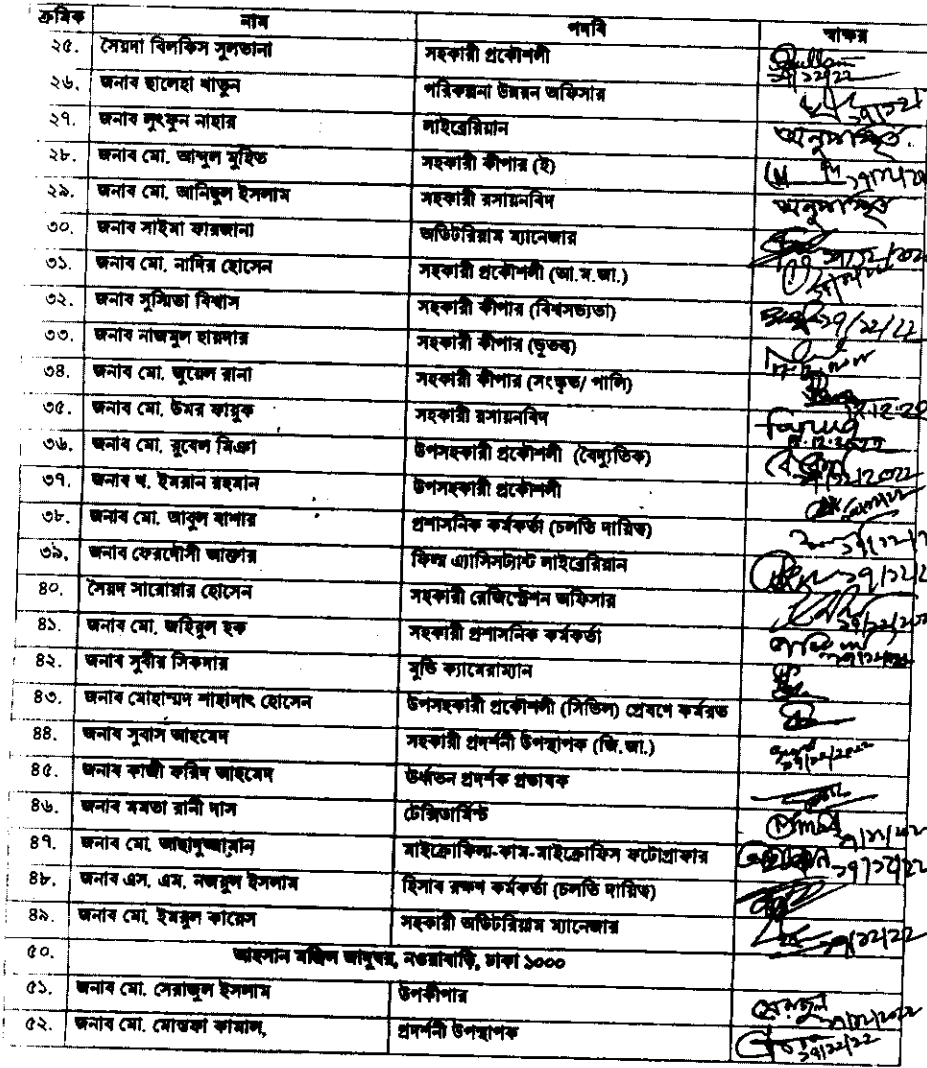 ক্রমিক নাম পদবি স্বাক্ষর
২৫. সৈয়দা বিলকিস সুলতানা সহকারী প্রকৌশলী
২৬. জনাব ছালেহা খাতুন পরিকল্পনা উন্নয়ন অফিসার
২৭. জনাব লুৎফুন নাহার লাইব্রেরিয়ান অনুপস্থিত.
২৮. জনাব মো. আব্দুল মুহিত সহকারী কীপার (ই)
২৯. জনাব মো. আনিছুল ইসলাম সহকারী রসায়নবিদ অনুপস্থিত
৩০. জনাব সাইমা ফারজানা অডিটরিয়াম ম্যানেজার
৩১. জনাব মো. নাদির হোসেন সহকারী প্রকৌশলী (আ.ম.জা.)
৩২. জনাব সুস্মিতা বিশ্বাস সহকারী কীপার (বিশ্বসভ্যতা) ২৯/১২/২২
৩৩. জনাব নাজমুল হায়দার সহকারী কীপার (ভূতত্ত্ব)
৩৪. জনাব মো. জুয়েল রানা সহকারী কীপার (সংস্কৃত/ পালি)
৩৫. জনাব মো. উমর ফারুক সহকারী রসায়নবিদ Faruq
৩৬. জনাব মো. রুবেল মিঞা উপসহকারী প্রকৌশলী (বৈদ্যুতিক)
৩৭. জনাব খ. ইমরান রহমান উপসহকারী প্রকৌশলী
৩৮. জনাব মো. আবুল বাশার প্রশাসনিক কর্মকর্তা (চলতি দায়িত্ব)
৩৯. জনাব ফেরদৌসী আক্তার ফিল্ম এ্যাসিসট্যান্ট লাইব্রেরিয়ান
৪০. সৈয়দ সারোয়ার হোসেন সহকারী রেজিস্ট্রেশন অফিসার
৪১. জনাব মো. জহিরুল হক সহকারী প্রশাসনিক কর্মকর্তা
৪২. জনাব সুবীর সিকদার মুভি ক্যামেরাম্যান
৪৩. জনাব মোহাম্মদ শাহাদাৎ হোসেন উপসহকারী প্রকৌশলী (সিভিল) প্রেষণে কর্মরত
৪৪. জনাব সুবাস আহমেদ সহকারী প্রদর্শনী উপস্থাপক (জি.জা.)
৪৫. জনাব কাজী ফরিদ আহমেদ ঊর্ধ্বতন প্রদর্শক প্রভাষক
৪৬. জনাব মমতা রানী দাস টেক্সিডার্মিস্ট
৪৭. জনাব মো. আছাদুজ্জামান মাইক্রোফিল্ম-কাম-মাইক্রোফিস ফটোগ্রাফার
৪৮. জনাব এস. এম. নজরুল ইসলাম হিসাব রক্ষণ কর্মকর্তা (চলতি দায়িত্ব)
৪৯. জনাব মো. ইমরুল কায়েস সহকারী অডিটরিয়াম ম্যানেজার
৫০. আহসান মঞ্জিল জাদুঘর, নওয়াবাড়ি, ঢাকা ১০০০
৫১. জনাব মো. সেরাজুল ইসলাম উপকীপার
৫২. জনাব মো. মোস্তফা কামাল, প্রদর্শনী উপস্থাপক